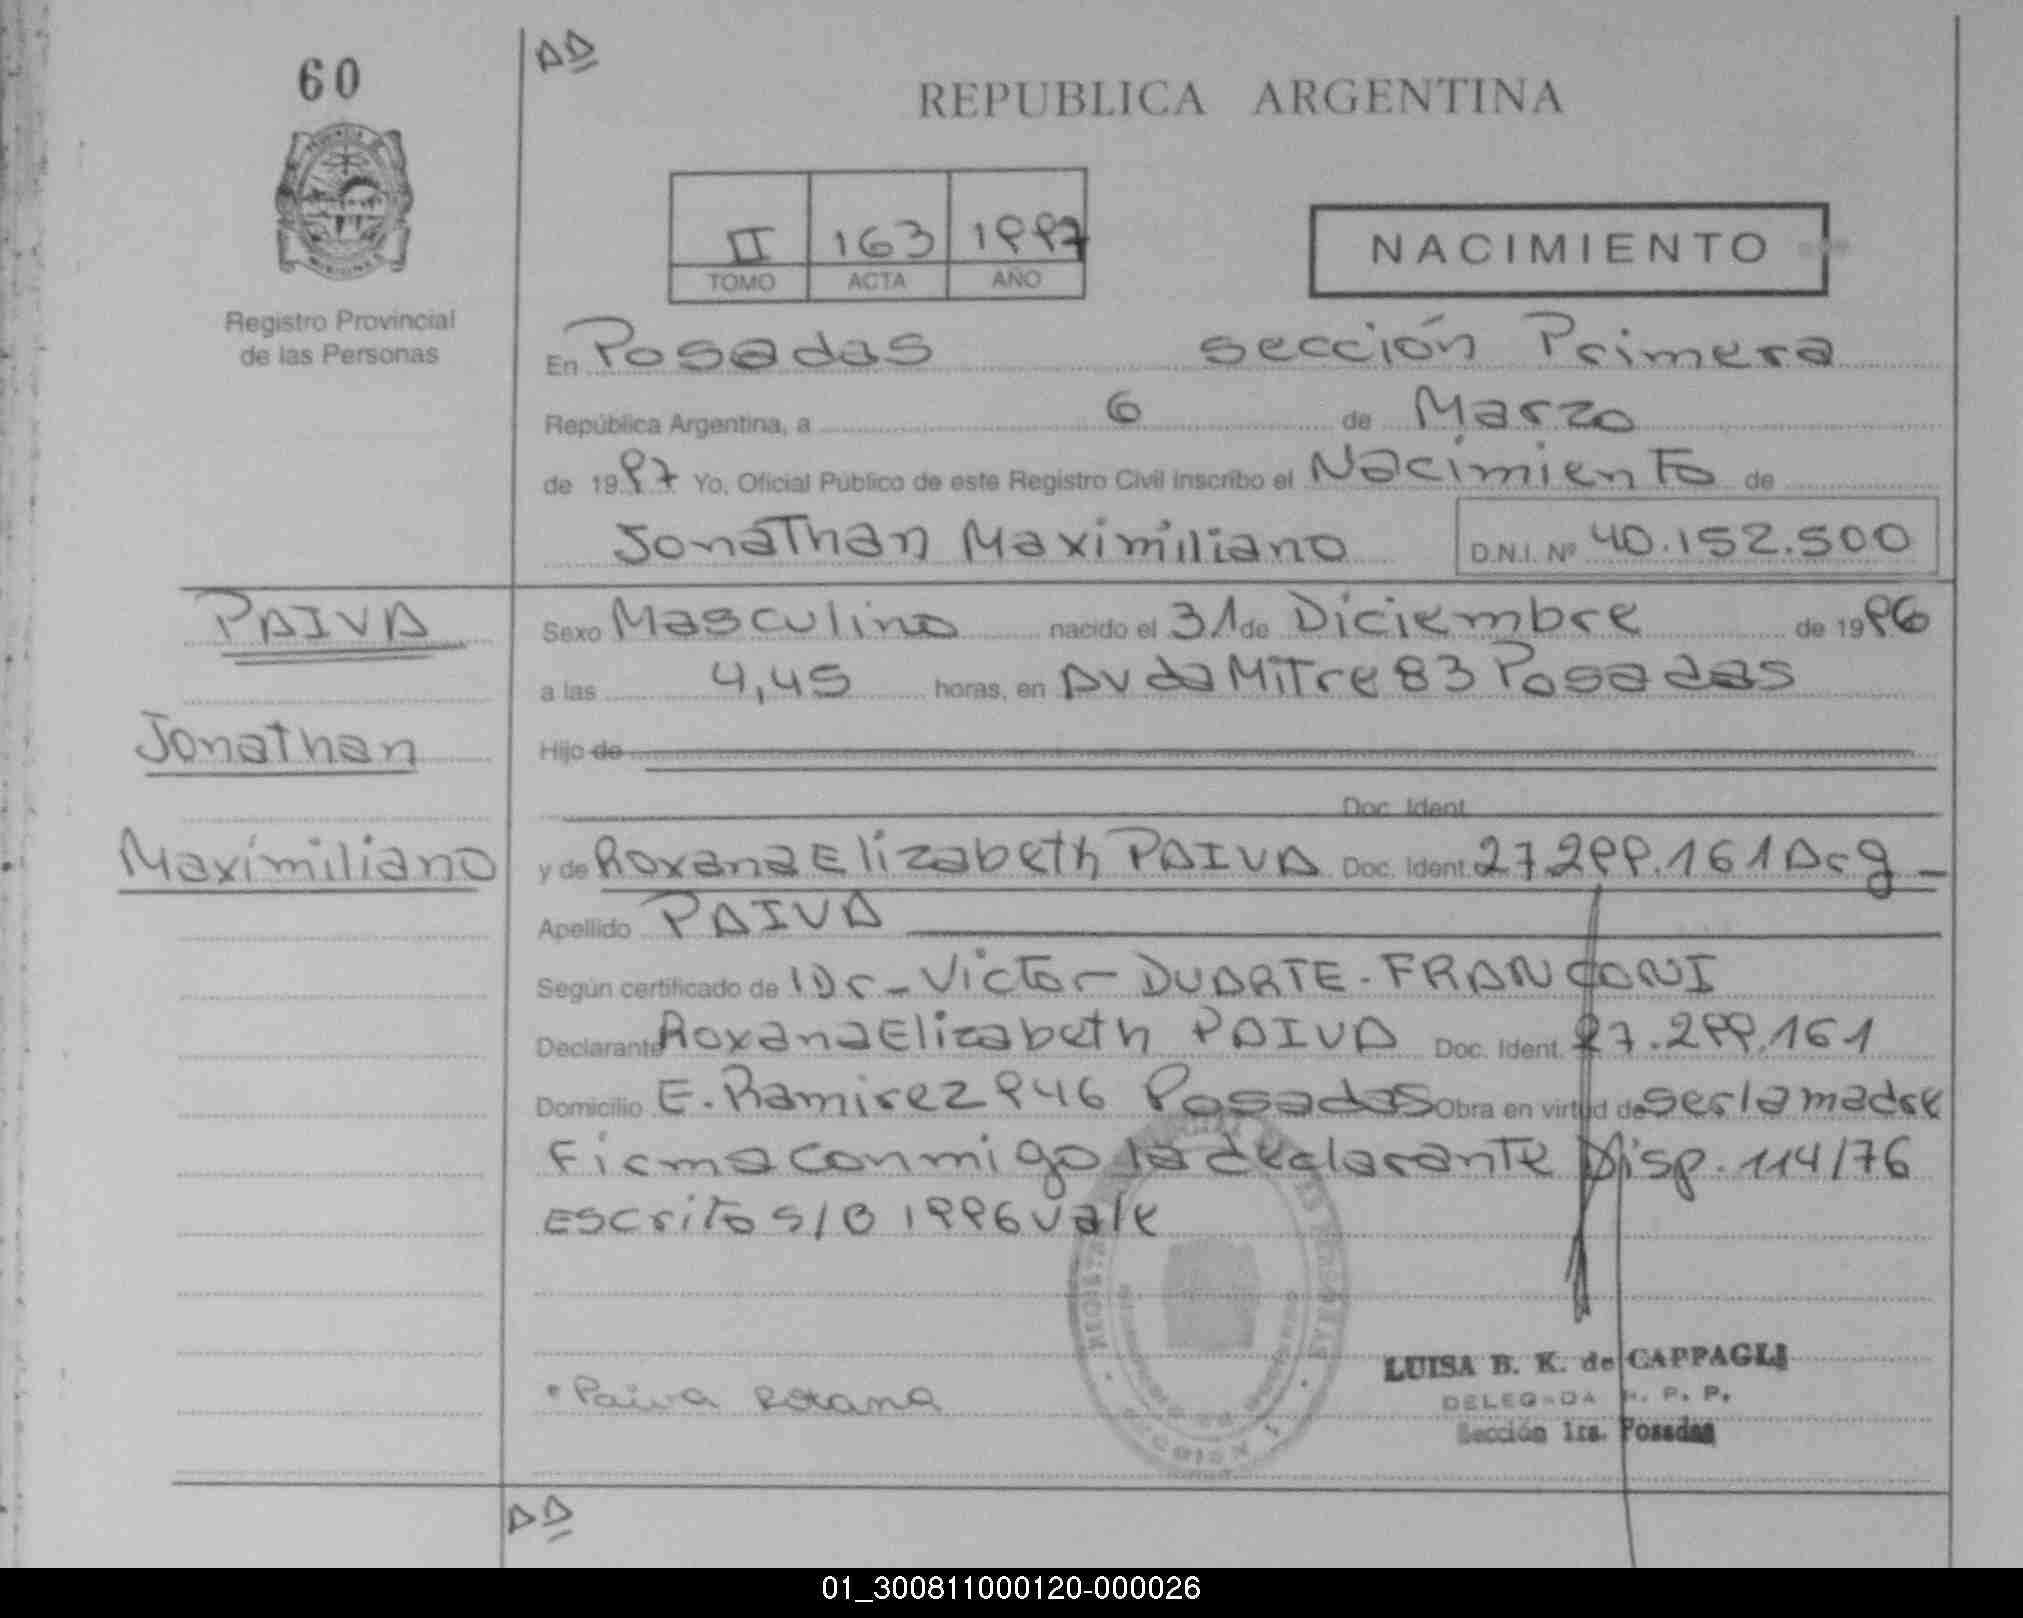 60
AA
REPUBLICA ARGENTINA
II 163 1997
TOMO ACTA AÑO
NACIMIENTO
PROVINCIA DE
MISIONES
Registro Provincial
de las Personas
En Posadas sección Primera
República Argentina, a 6 de Marzo
de 1997 Yo, Oficial Público de este Registro Civil inscribo el Nacimiento de
Jonathan Maximiliano D.N.I. Nº 40.152.500
PAIVA
Jonathan
Maximiliano
Sexo Masculino nacido el 31 de Diciembre de 1996
a las 4,45 horas, en Avda Mitre 83 Posadas
Hijo de
Doc. Ident.
y de Roxana Elizabeth PAIVA Doc. Ident. 27.299.161 Arg
Apellido PAIVA
Según certificado de Dr - Victor - DUARTE - FRANCONI
Declarante Roxana Elizabeth PAIVA Doc. Ident. 27.299.161
Domicilio E. Ramirez 946 Posadas Obra en virtud de ser la madre
Firma conmigo la declarante Disp. 114/76
Escrito s/B 1996 vale
Paiva Roxana
LUISA B. K. de CAPPAGLI
DELEGADA R. P. P.
Sección 1ra. Posadas
AA
01_300811000120-000026